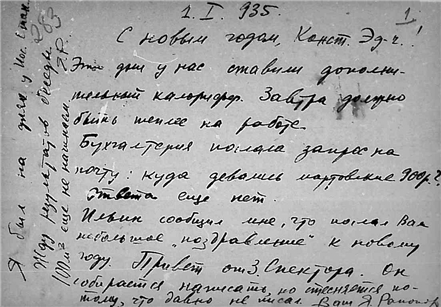 1. I. 935.
1
С новым годом, Конст. Эд-ч!
Эти дни у нас ставили дополни-
тельный калорифер. Завтра должно
быть теплее на работе.
Бухгалтерия послала запрос на
почту: куда девались мартовские 900р.?
Ответа еще нет.
Ильин сообщил мне, что послал Вам
небольшое „поздравление" к новому
году. Привет от З. Спектора. Он
собирается написать, но стесняется по-
тому, что давно не писал. Ваш Я.
Я был на днях у
Жду результатов беседы.
еще не начинали. Я.Р.